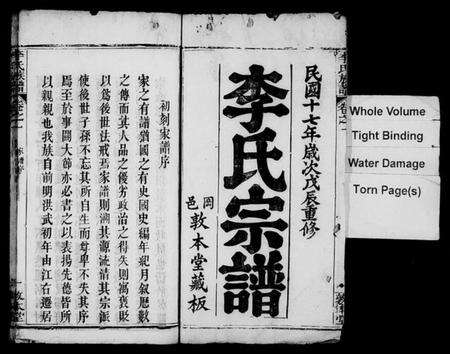 民國十七年歲次戊辰重修
李氏宗譜
岡邑
敦本堂藏板
初刻家譜序
家之有譜猶國之有史國史編年紀月敘歷數
之傳而其人品之優劣政治之得失則寓褒貶
以爲後世法戒焉家譜則溯其源流清其宗派
使後世子孫不忘其所自生而尊卑不失其序
焉至於事關大節亦必書之以表揚先德皆所
以親親也我族自前明洪武初年由江右遷居
Whole Volume
Tight Binding
Water Damage
Torn Page(s)